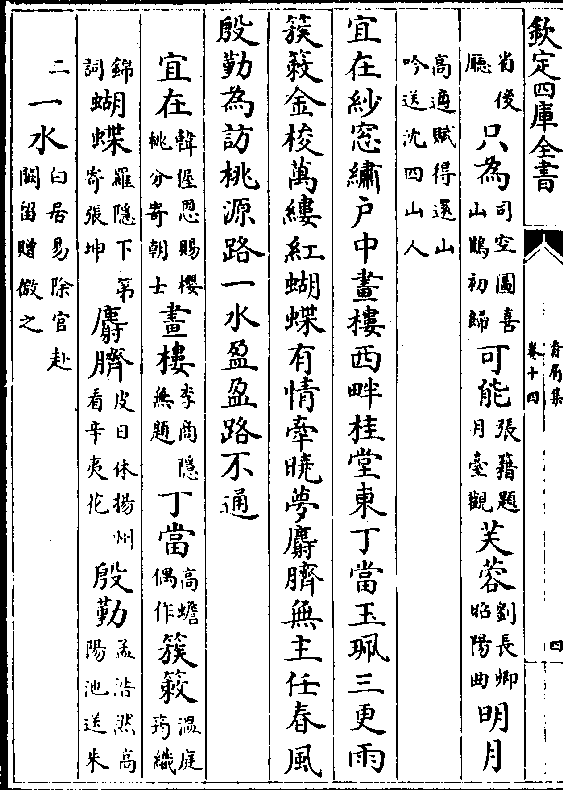 欽定四庫全書
香屑集
卷十四
四
省後廳只為司空圖喜山鵲初歸可能張籍題月臺觀芙蓉劉長卿昭陽曲明月
高適賦得還山吟送沈四山人
宜在紗窓繡户中畫樓西畔桂堂東丁當玉珮三更雨
簇簌金梭萬縷紅蝴蝶有情牽曉夢麝臍無主任春風
殷勤為訪桃源路一水盈盈路不通
宜在韓偓恩賜櫻桃分寄朝士畫樓李商隱無題丁當高蟾偶作簇簌温庭筠織
錦詞蝴蝶羅隱下第寄張坤麝臍皮日休揚州看辛夷花殷勤孟浩然高陽池送朱
二一水白居易除官赴闕留贈微之